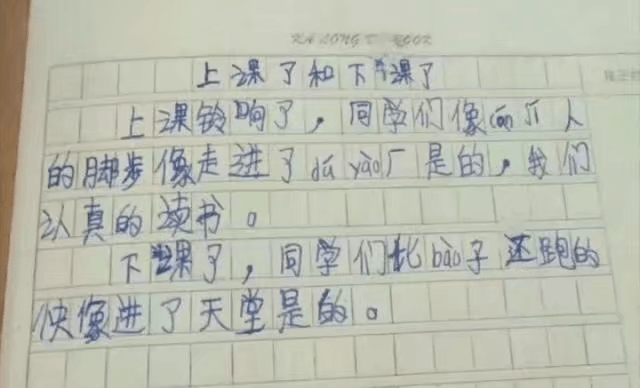 上课了和下课了
上课铃响了，同学们像cán人
的脚步像走进了dú yào厂是的，我们
认真的读书。
下课了，同学们比bào子还跑的
快像进了天堂是的。